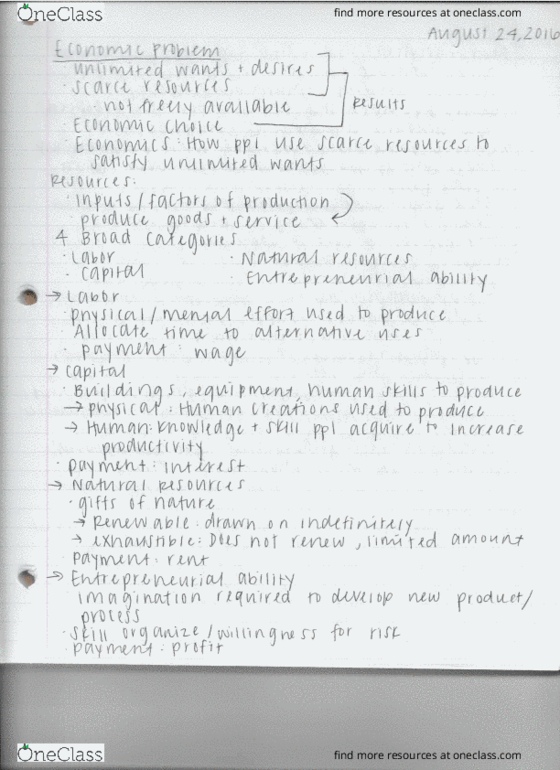 OneClass
find more resources at oneclass.com
August 24, 2016
Economic problem
· unlimited wants + desires
· scarce resources
· not freely available
Results
Economic choice
· Economics: How ppl use scarce resources to
satisfy unlimited wants
Resources:
· inputs/factors of production
· produce goods + service
4 Broad Categories
· Labor
· Natural resources
· Capital
· Entrepreneurial ability
→ Labor
· physical/mental effort used to produce
Allocate time to alternative uses
· payment: wage
→ Capital
· Buildings, equipment, human skills to produce
→ physical: Human creations used to produce
→ Human: Knowledge + skill ppl acquire to increase
productivity
· payment: interest
→ Natural Resources
· gifts of nature
→ Renewable: drawn on indefinitely
→ exhaustible: Does not renew, limited amount
payment: rent
→ Entrepreneurial ability
imagination required to develop new product/
process
· skill organize/willingness for risk
· payment: profit
OneClass
find more resources at oneclass.com